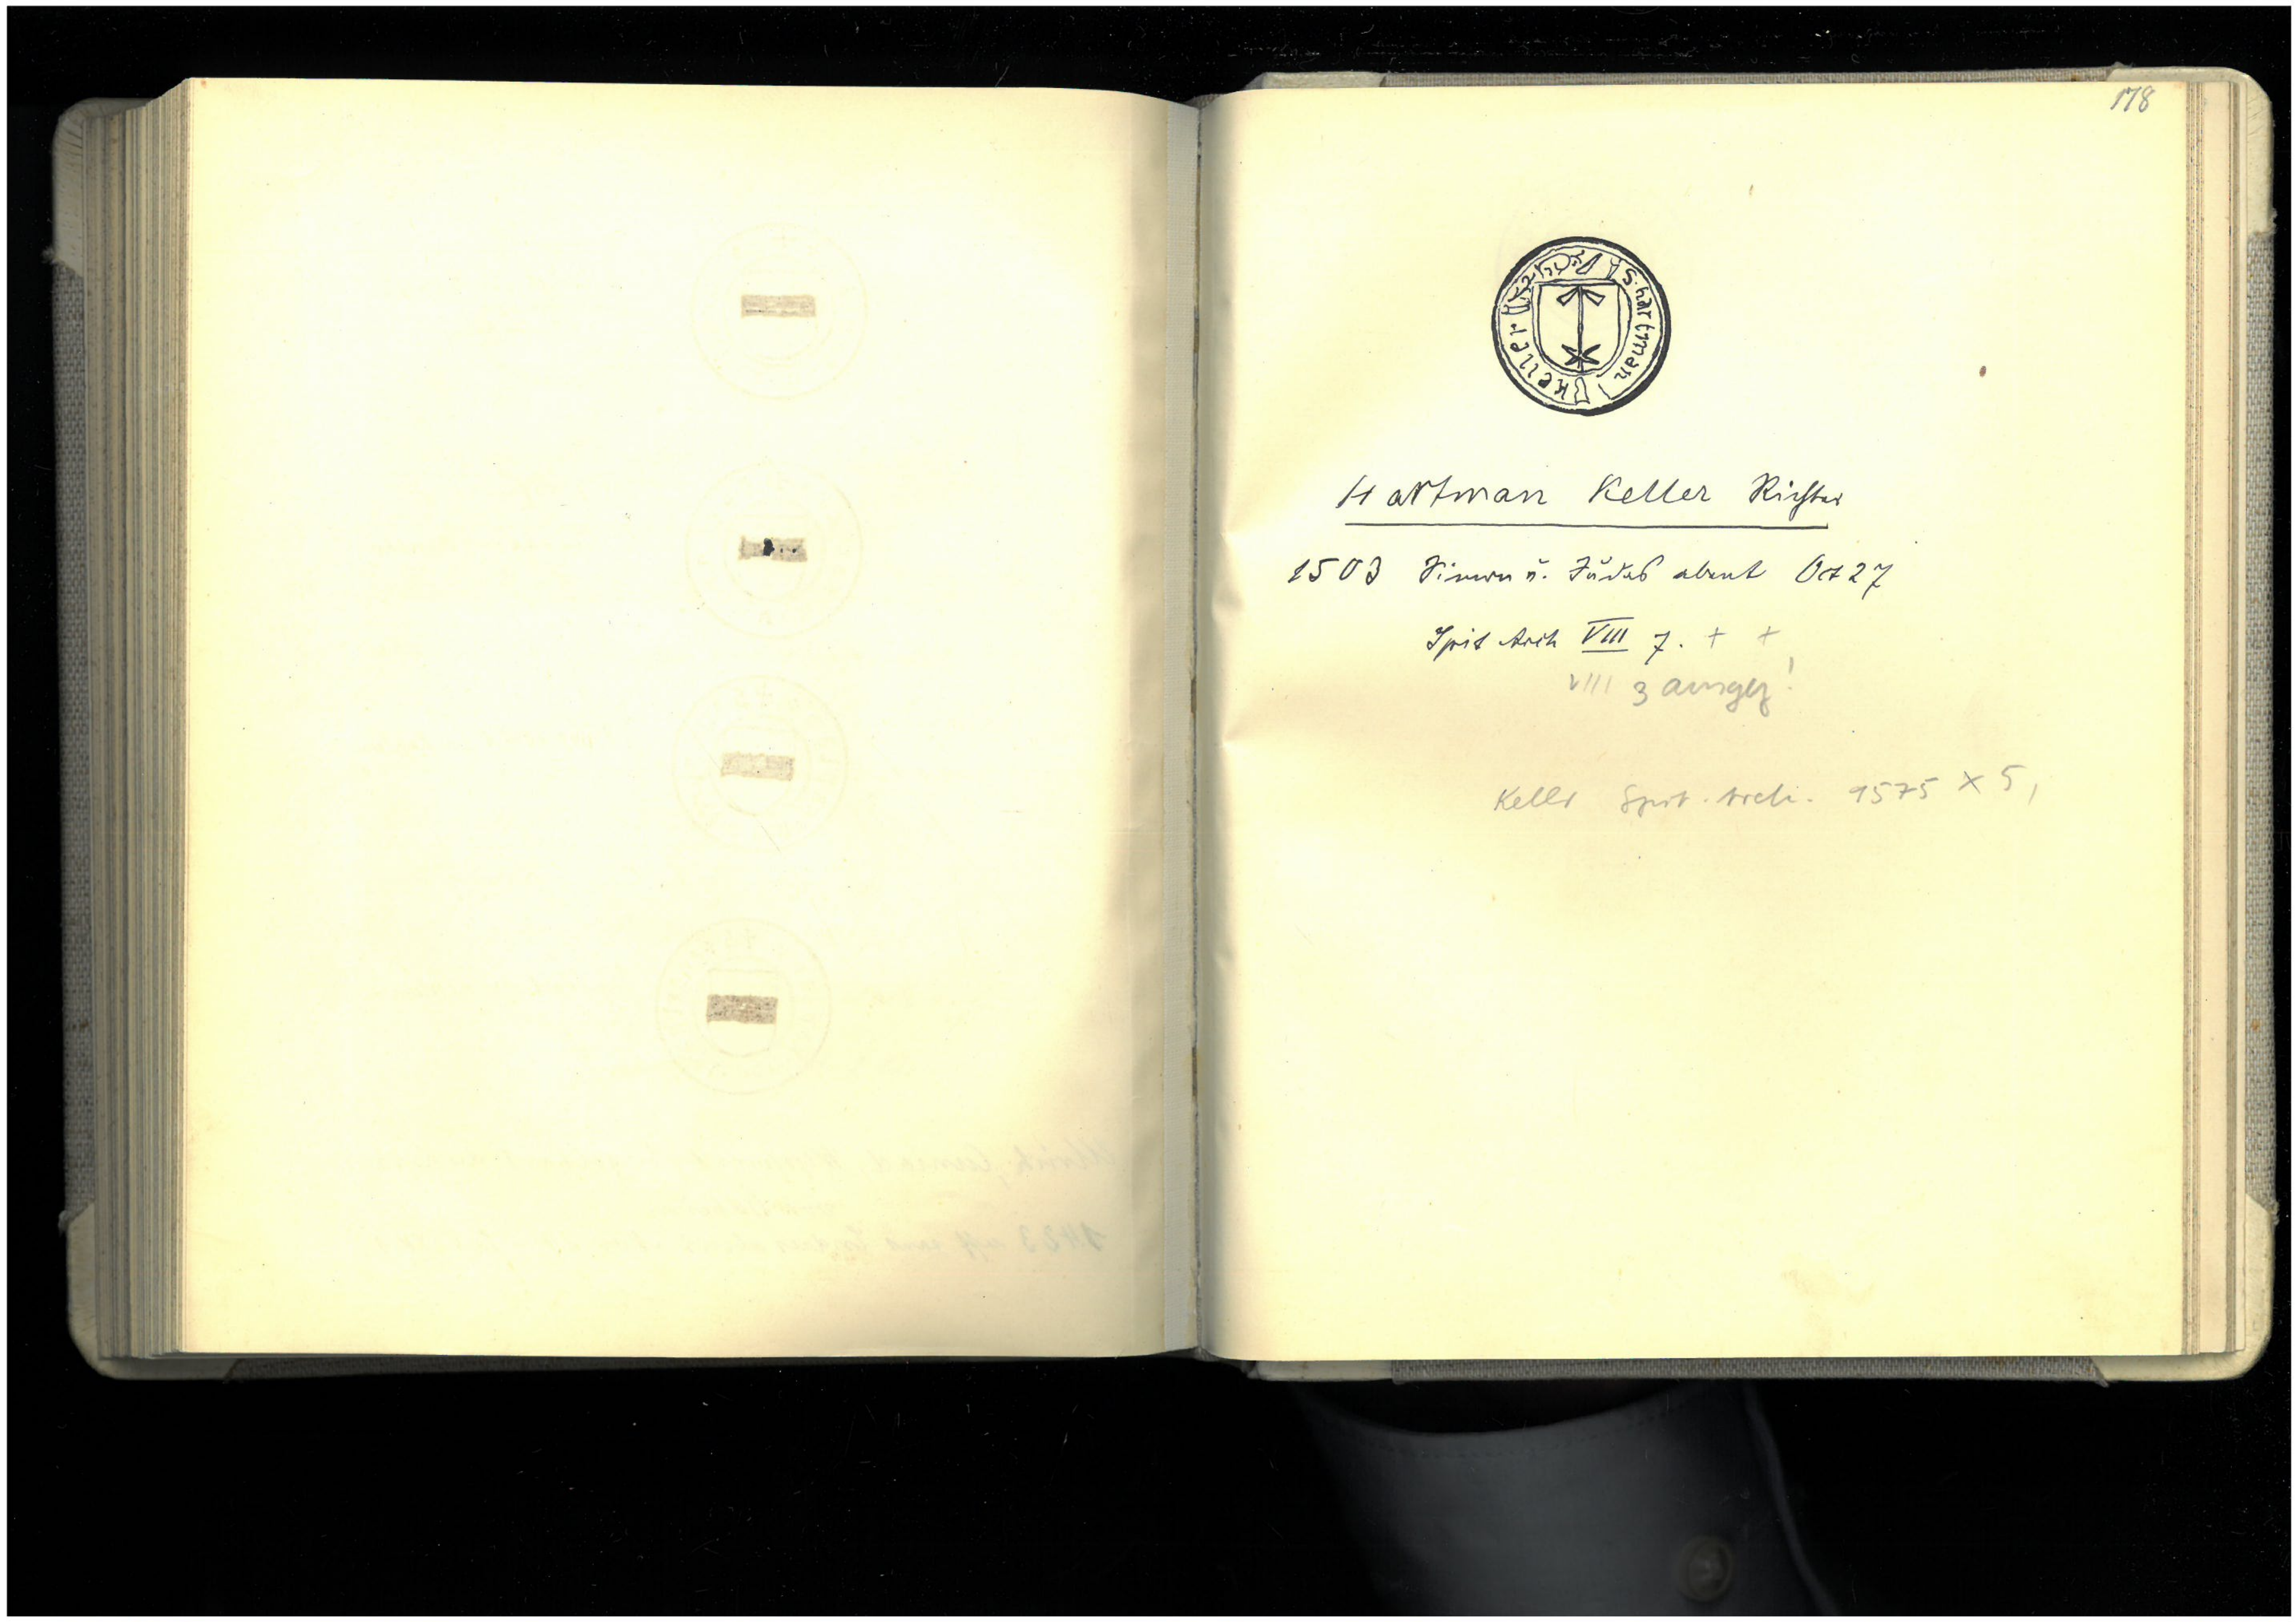 178
S. hartman keller
Hartman Keller Richter
1503 Simon u. Judas abent Oct 27
Spit Arch VIII 7. + +
VIII 3 ausgez!
Keller Spit. Arch. 1575 X 5,